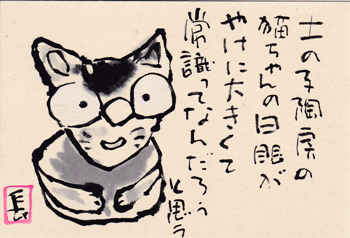 土の子陶房の
猫ちゃんの目眼が
やけに大きくて
常識ってなんだろう
と思う